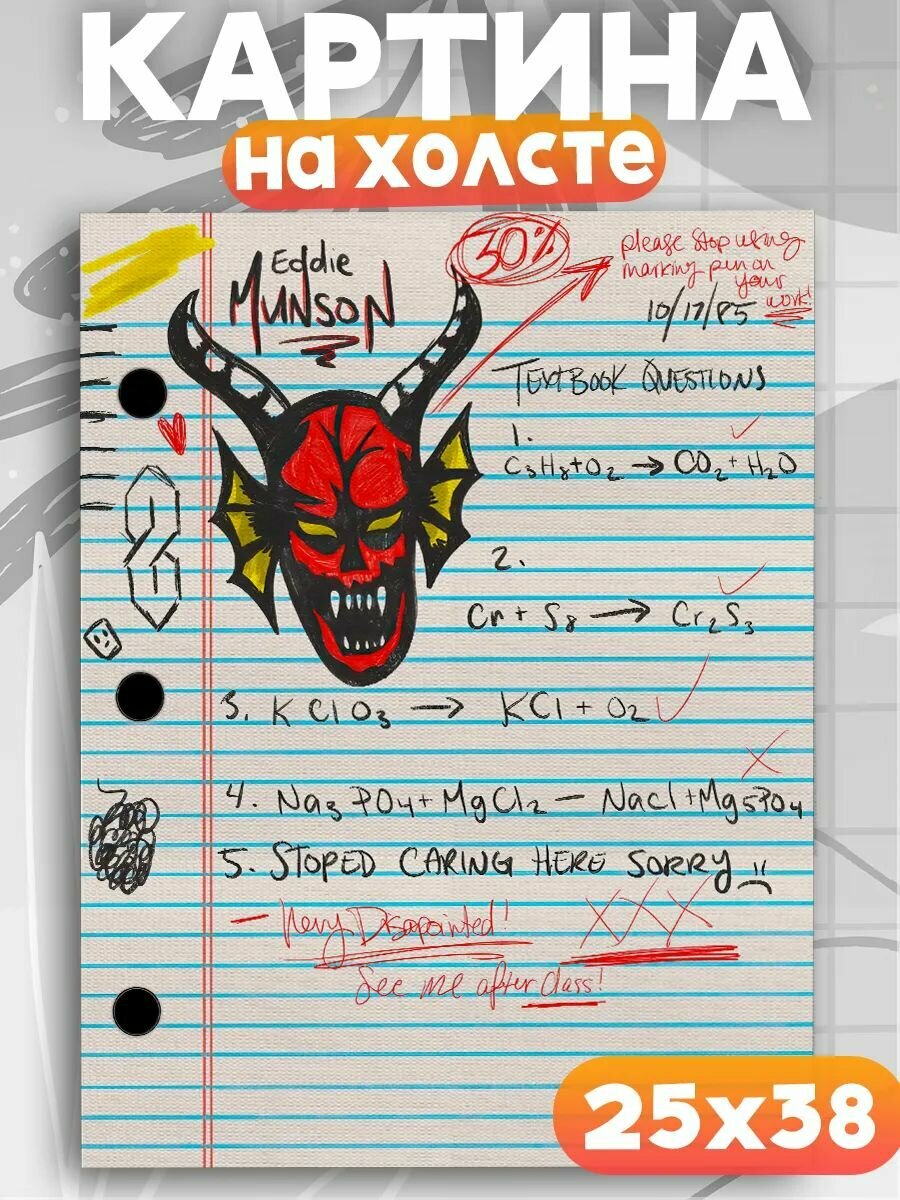 КАРТИНА
на холсте
Eddie
MUNSON
30%
please stop using
marking pen on
your
work!
10/17/85
TEXTBOOK QUESTIONS
1.
C3H8+O2 → CO2+H2O
2.
Cr + S8 → Cr2S3
3. KClO3 → KCl + O2
4. Na3PO4+MgCl2 — NaCl+Mg5PO4
5. STOPED CARING HERE SORRY
— Very Disapointed!
XXX
See me after class!
25х38